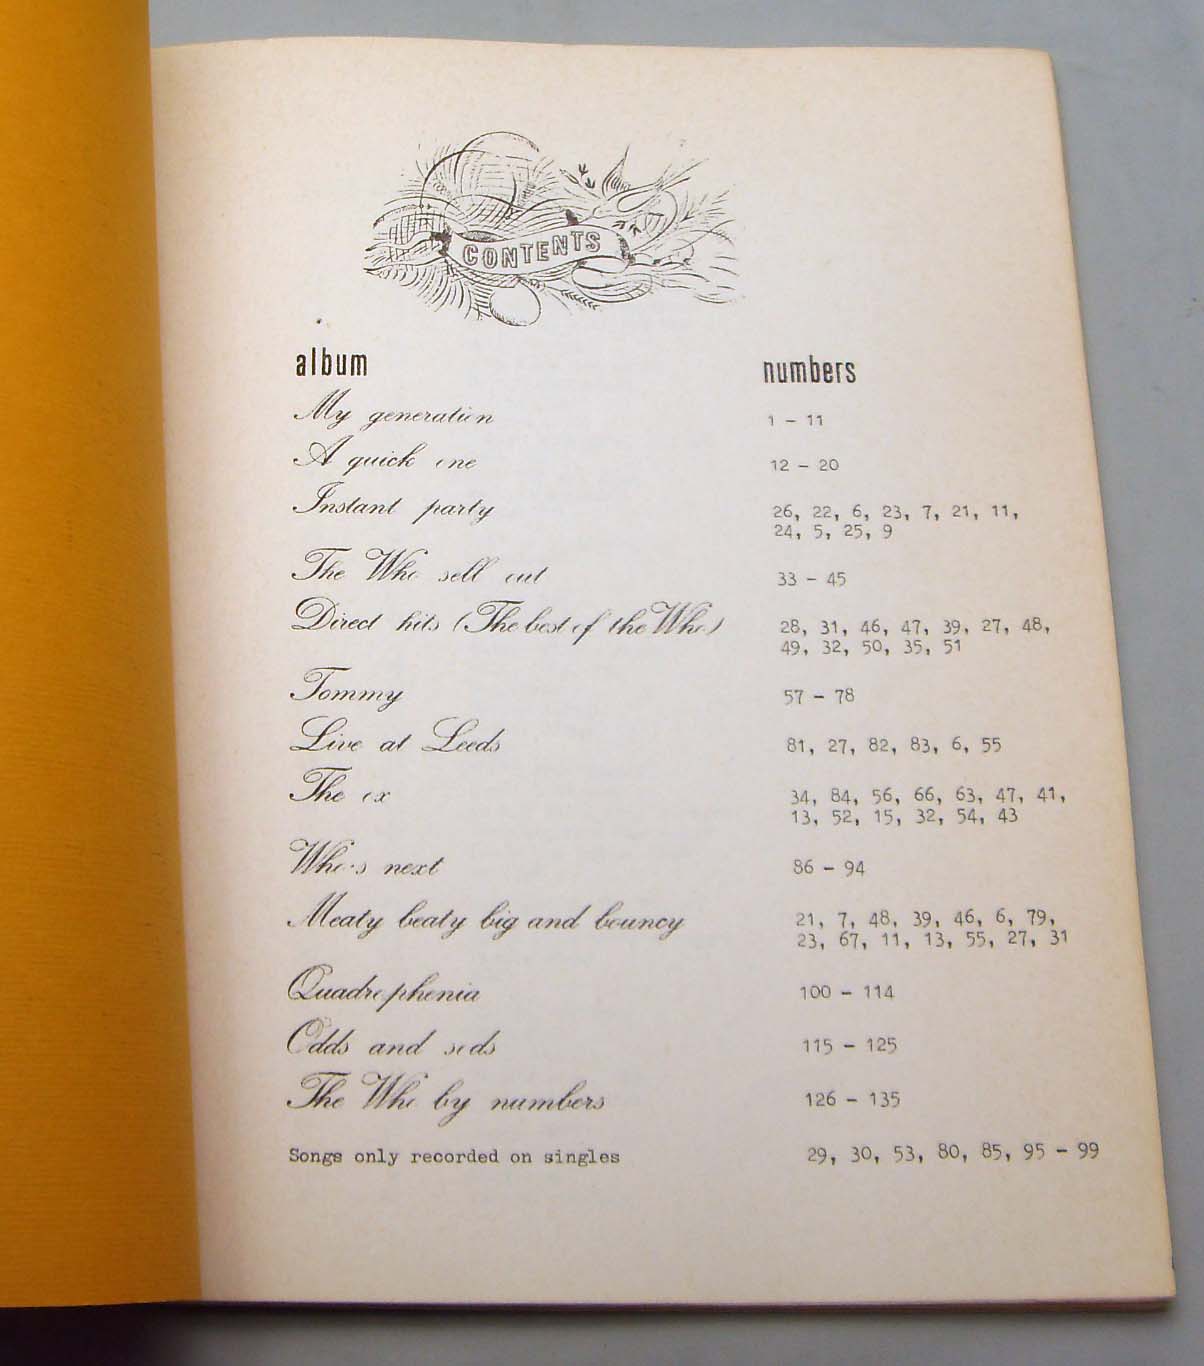 CONTENTS
album numbers
My generation 1 - 11
A quick one 12 - 20
Instant party 26, 22, 6, 23, 7, 21, 11,
24, 5, 25, 9
The Who sell out 33 - 45
Direct hits (The best of the Who) 28, 31, 46, 47, 39, 27, 48,
49, 32, 50, 35, 51
Tommy 57 - 78
Live at Leeds 81, 27, 82, 83, 6, 55
The ox 34, 84, 56, 66, 63, 47, 41,
13, 52, 15, 32, 54, 43
Who's next 86 - 94
Meaty beaty big and bouncy 21, 7, 48, 39, 46, 6, 79,
23, 67, 11, 13, 55, 27, 31
Quadrophenia 100 - 114
Odds and sods 115 - 125
The Who by numbers 126 - 135
Songs only recorded on singles 29, 30, 53, 80, 85, 95 - 99